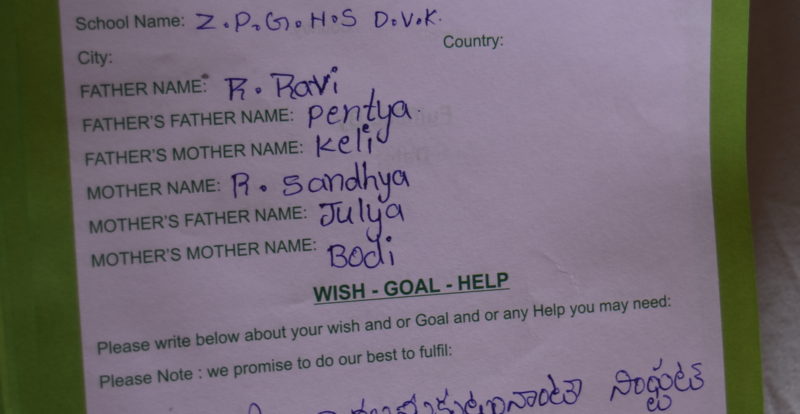 School Name: Z.P.G.H.S D.V.K.
City: Country:
FATHER NAME: R. Ravi
FATHER'S FATHER NAME: Pentya
FATHER'S MOTHER NAME: Keli
MOTHER NAME: R. Sandhya
MOTHER'S FATHER NAME: Julya
MOTHER'S MOTHER NAME: Bodi
WISH - GOAL - HELP
Please write below about your wish and or Goal and or any Help you may need:
Please Note : we promise to do our best to fulfil: